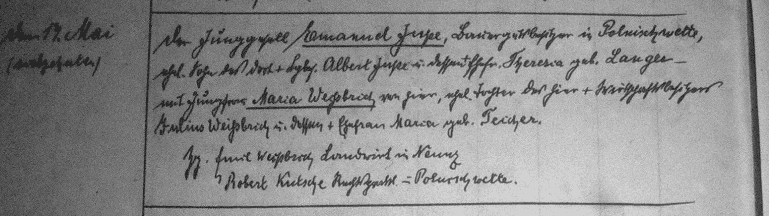 den 17. Mai
Der Junggesell Emanuel, Bauergutsbesitzer in Polnischwette,
ehel. Sohn des dort + Albert u. dessen Ehefr. Theresia geb. Langer –
mit Jungfrau Maria Weißbrich von hier, ehel. Tochter des hier + Wirtschaftsbesitzers
Weißbrich u. dessen + Ehefrau Maria geb. Teicher.
Zg. Emil Weißbrich Landwirt in
Robert Kutsche Polnischwette.